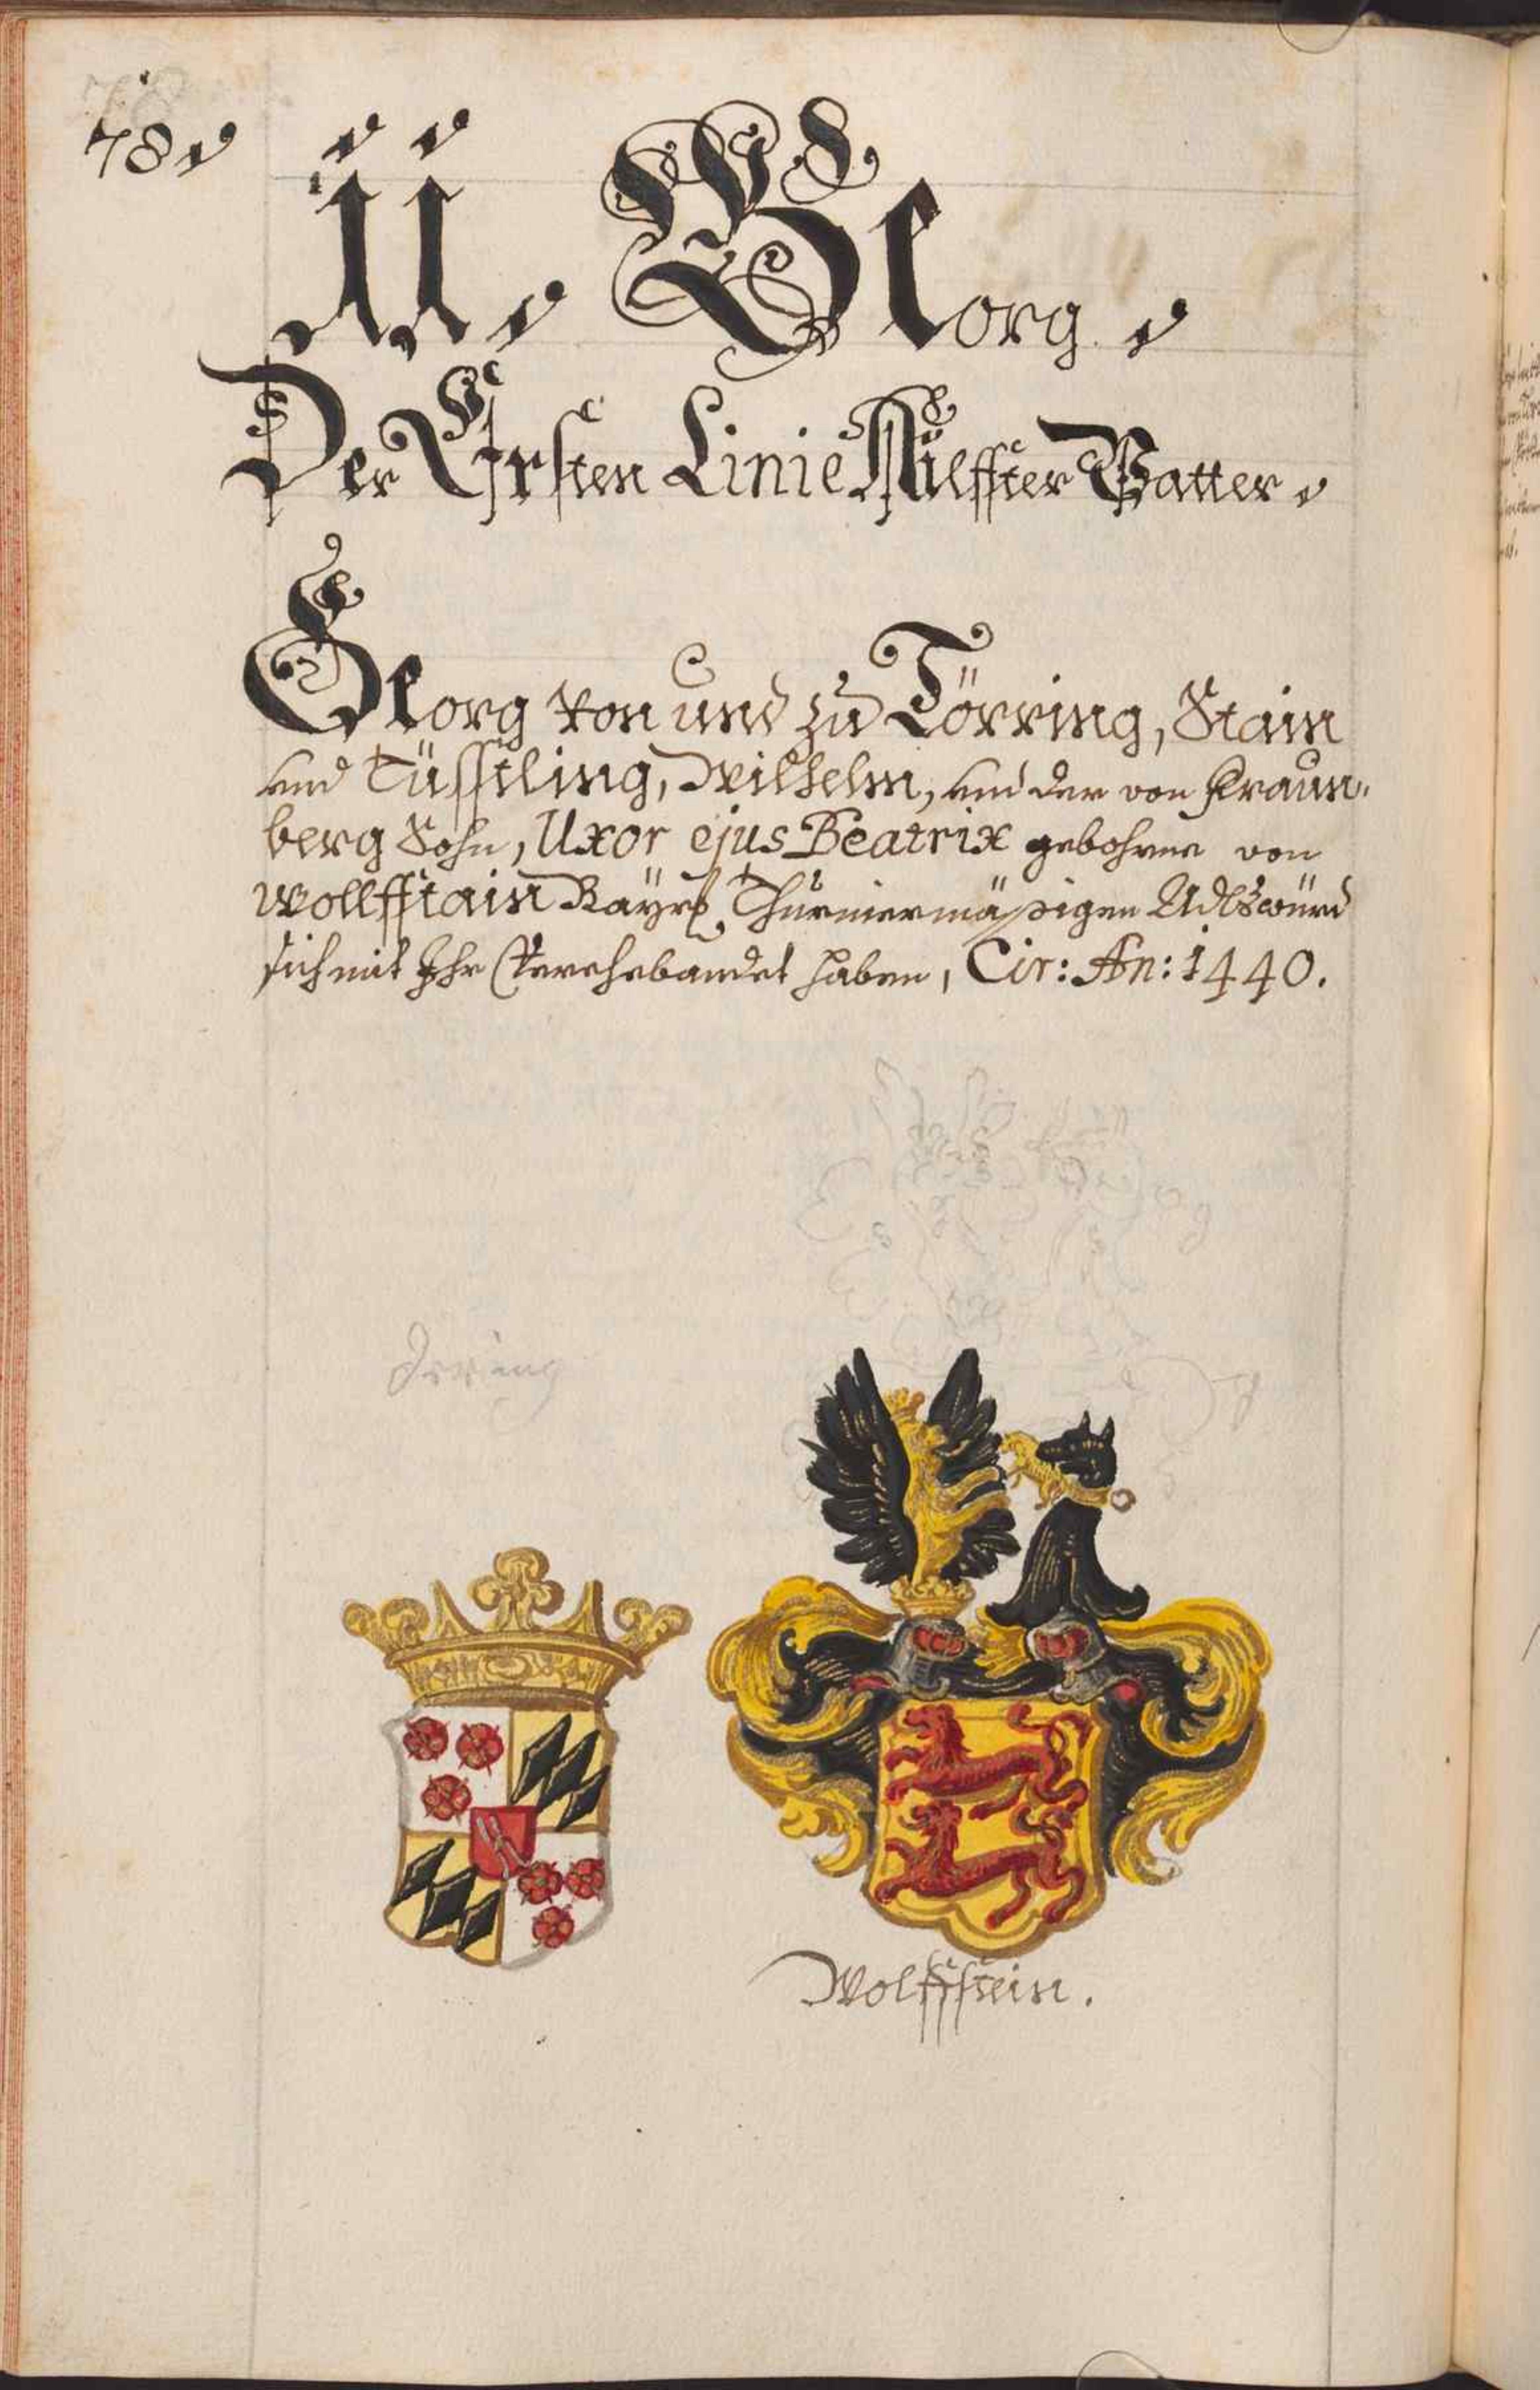 78.
11. Georg.
Der Ersten Linie Ailffter Vatter.
Georg von und zu Törring, Stain
und Tüssling, Wilhelm, und der von Fraun-
berg Sohn, Uxor ejus Beatrix gebohrne von
Wollffstain Bayrß. Thurniermäßigen Adlswürd
sich mit Ihr Verehebandet haben, Cir: An: 1440.
Törring
Wolffstein.